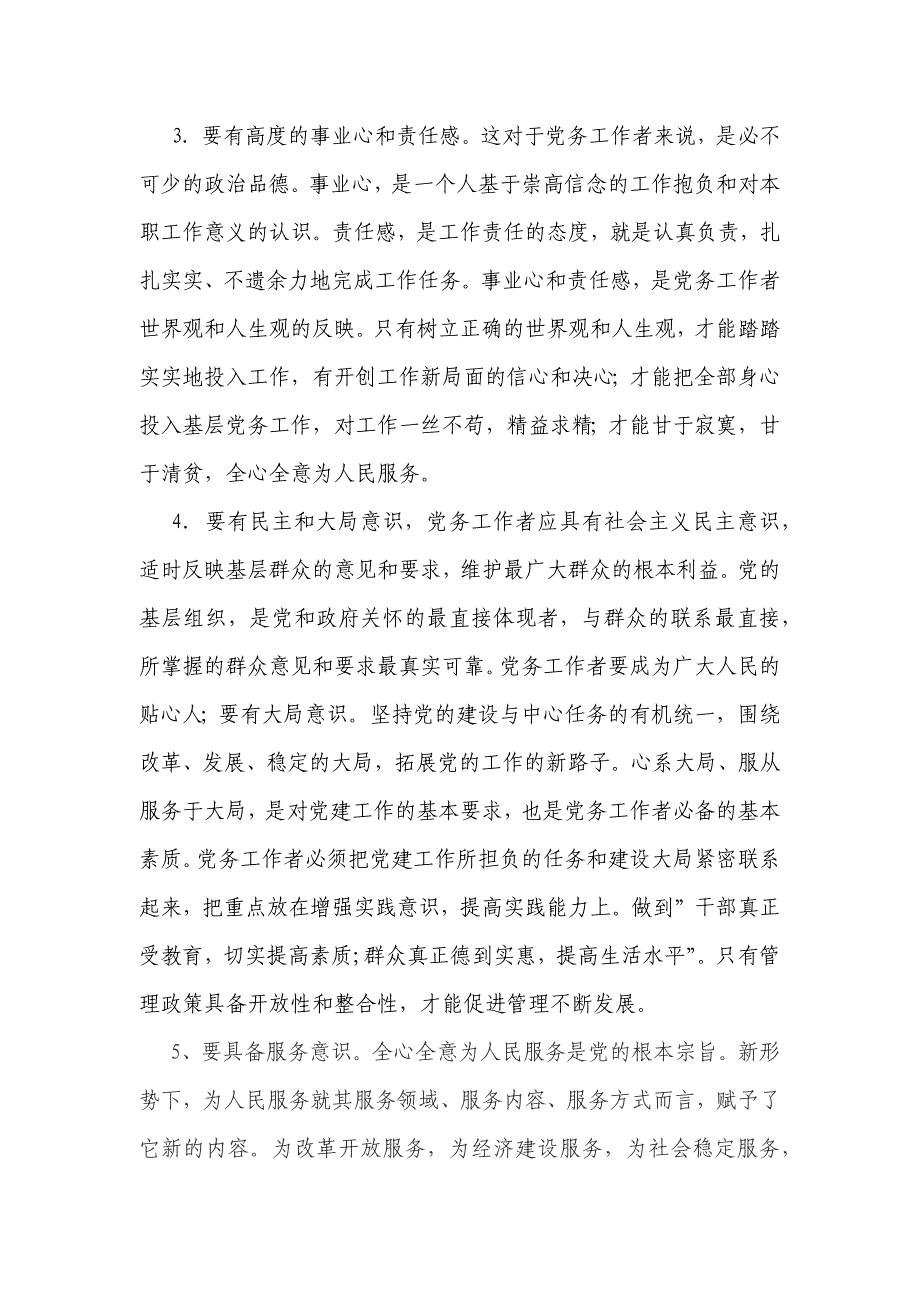 3．要有高度的事业心和责任感。这对于党务工作者来说，是必不
可少的政治品德。事业心，是一个人基于崇高信念的工作抱负和对本
职工作意义的认识。责任感，是工作责任的态度，就是认真负责，扎
扎实实、不遗余力地完成工作任务。事业心和责任感，是党务工作者
世界观和人生观的反映。只有树立正确的世界观和人生观，才能踏踏
实实地投入工作，有开创工作新局面的信心和决心；才能把全部身心
投入基层党务工作，对工作一丝不苟，精益求精；才能甘于寂寞，甘
于清贫，全心全意为人民服务。
4．要有民主和大局意识，党务工作者应具有社会主义民主意识，
适时反映基层群众的意见和要求，维护最广大群众的根本利益。党的
基层组织，是党和政府关怀的最直接体现者，与群众的联系最直接，
所掌握的群众意见和要求最真实可靠。党务工作者要成为广大人民的
贴心人；要有大局意识。坚持党的建设与中心任务的有机统一，围绕
改革、发展、稳定的大局，拓展党的工作的新路子。心系大局、服从
服务于大局，是对党建工作的基本要求，也是党务工作者必备的基本
素质。党务工作者必须把党建工作所担负的任务和建设大局紧密联系
起来，把重点放在增强实践意识，提高实践能力上。做到”干部真正
受教育，切实提高素质；群众真正德到实惠，提高生活水平”。只有管
理政策具备开放性和整合性，才能促进管理不断发展。
5、要具备服务意识。全心全意为人民服务是党的根本宗旨。新形
势下，为人民服务就其服务领域、服务内容、服务方式而言，赋予了
它新的内容。为改革开放服务，为经济建设服务，为社会稳定服务，